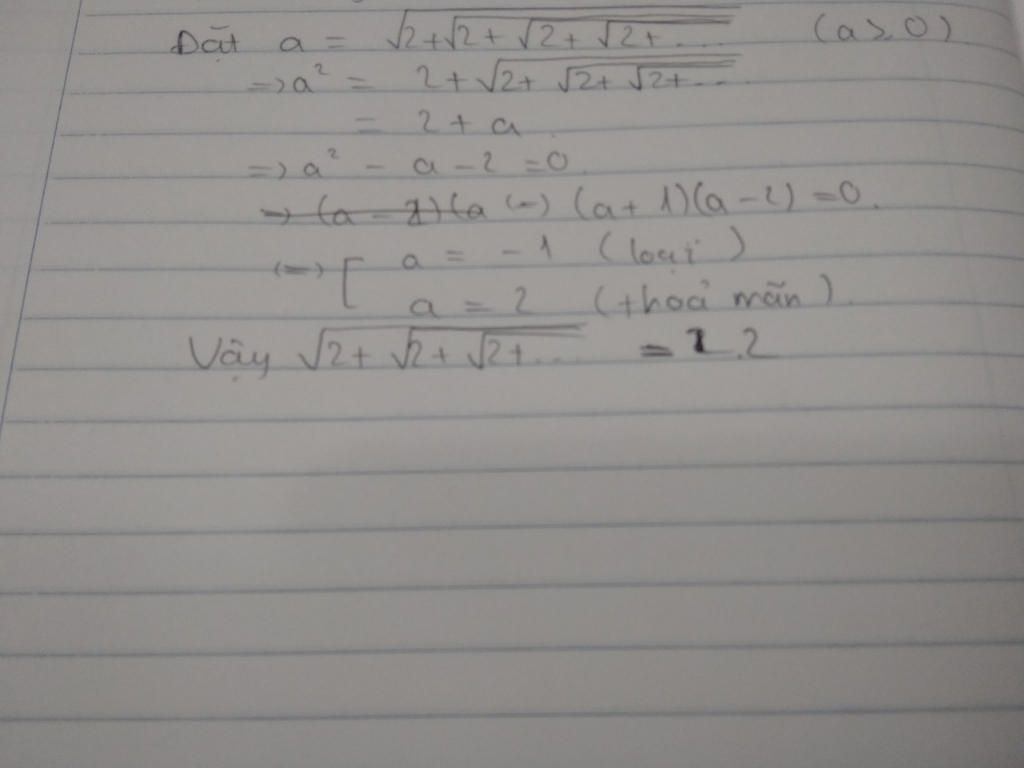 Đặt a = √2+√2+√2+√2+... (a > 0)
=> a² = 2+√2+√2+√2+...
= 2 + a
=> a² - a - 2 = 0
(=) (a+1)(a-2) = 0.
(=) [ a = -1 (loại)
a = 2 (thoả mãn).
Vậy √2+√2+√2+... = 2